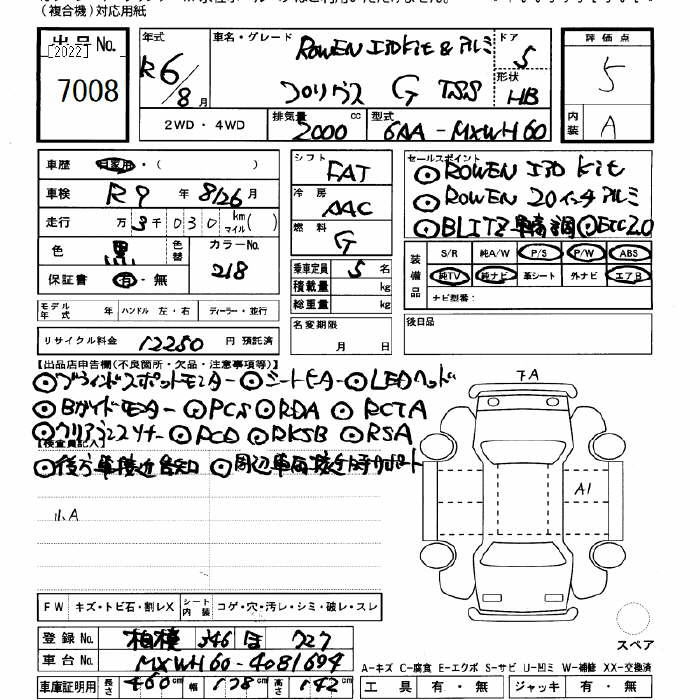 （複合機）対応用紙
出品No.
[2022]
7008
年式 R6/8月
車名・グレード ROWEN エアロkit & アルミ
プリウス G TSS
ドア 5
形状 HB
評価点 5
内装 A
2WD・4WD
排気量 2000 cc
型式 6AA-MXWH60
車歴 自家用・( )
車検 R9年8/26月
走行 万3千030 km マイル( )
色 黒 色替 カラーNo. 218
保証書 有・無
シフト FAT
冷房 AAC
燃料 G
乗車定員 5名
積載量 kg
総重量 kg
セールスポイント
◎ROWEN エアロ kit
◎ROWEN 20インチアルミ
◎BLITZ車高調 ◎ETC2.0
装備品 S/R 純A/W P/S P/W ABS
純TV 純ナビ 革シート 外ナビ エアB
ナビ型番：
モデル年式 年 ハンドル 左・右 ディーラー・並行
リサイクル料金 12280 円 預託済
名変期限 月 日
後日品
【出品店申告欄(不良箇所・欠品・注意事項等)】
◎ブラインドスポットモニター ◎シートヒーター ◎LEDヘッド
◎Bガイドモニター ◎PCS ◎RDA ◎RCTA
◎クリアランスソナー ◎PCD ◎PKSB ◎RSA
【検査員記入】
◎後方車接近告知 ◎周辺車両接近時サポート
小A
フA
A1
FW キズ・トビ石・割レX シート内装 コゲ・穴・汚レ・シミ・破レ・スレ
登録No. 相模 346 ほ 727
車台No. MXWH60-4081694
車庫証明用 長さ 460cm 幅 178cm 高さ 142cm
スペア
A-キズ C-腐食 E-エクボ S-サビ U-凹ミ W-補修 XX-交換済
工具 有・無 ジャッキ 有・無